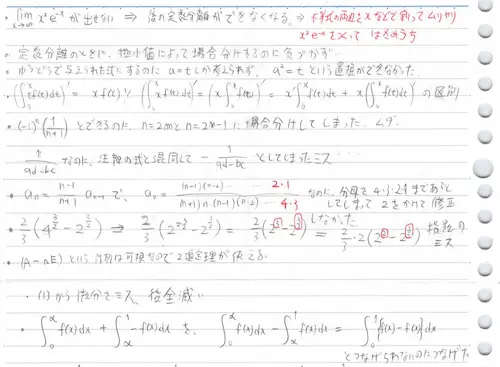 ・lim x²e^{-x} が出せない ⇒ 後の定数分離ができなくなる。⇒ 不等式の両辺を x などで割ってムリヤリ
x→∞ x²e^{-x} をつくって はさみうち
・定数分離のときに、極小値によって場合分けするのに気づかず…
・ゆうどうで与えられた式にするのに a=t しか考えられず、a²=t という置換ができなかった。
・(∫₀ˣ xf(t)dt)' = xf(x) (∫₀ˣ xf(t)dt)' = (x∫₀ˣ f(t)dt)' = x'∫₀ˣ f(t)dt + x(∫₀ˣ f(t)dt)' の区別
・(-1)ⁿ(1/(n+1)) とできるのに、n=2m と n=2m-1 に場合分けしてしまった。ムダ。
1/(ad-bc) なのに、法線の式と混同して -1/(ad-bc) としてしまったミス…
・aₙ = (n-1)/(n+1) aₙ₋₁ で、aₙ = (n-1)(n-2)……2・1 / (n+1)n(n-1)(n-2)……4・3 なのに、分母を 4・3・2・1 まであると
してしまって 2 をかけて修正しなかった
・2/3(4^{3/2} - 2^{3/2}) ⇒ 2/3(2^{2・3/2} - 2^{3/2}) = 2/3(2^{3} - 2^{3/2}) = 2/3・2(2^{2} - 2^{1/2}) 指数のミス
・(A-nE) という行列は可換なので 2項定理が使える。
・(1)から微分でミス、後全滅…
・∫₀^α f(x)dx + ∫_α^1 -f(x)dx を、∫₀^α f(x)dx - ∫_α^1 f(x)dx = ∫₀^1 {f(x)-f(x)}dx
とつなげられないのにつなげた